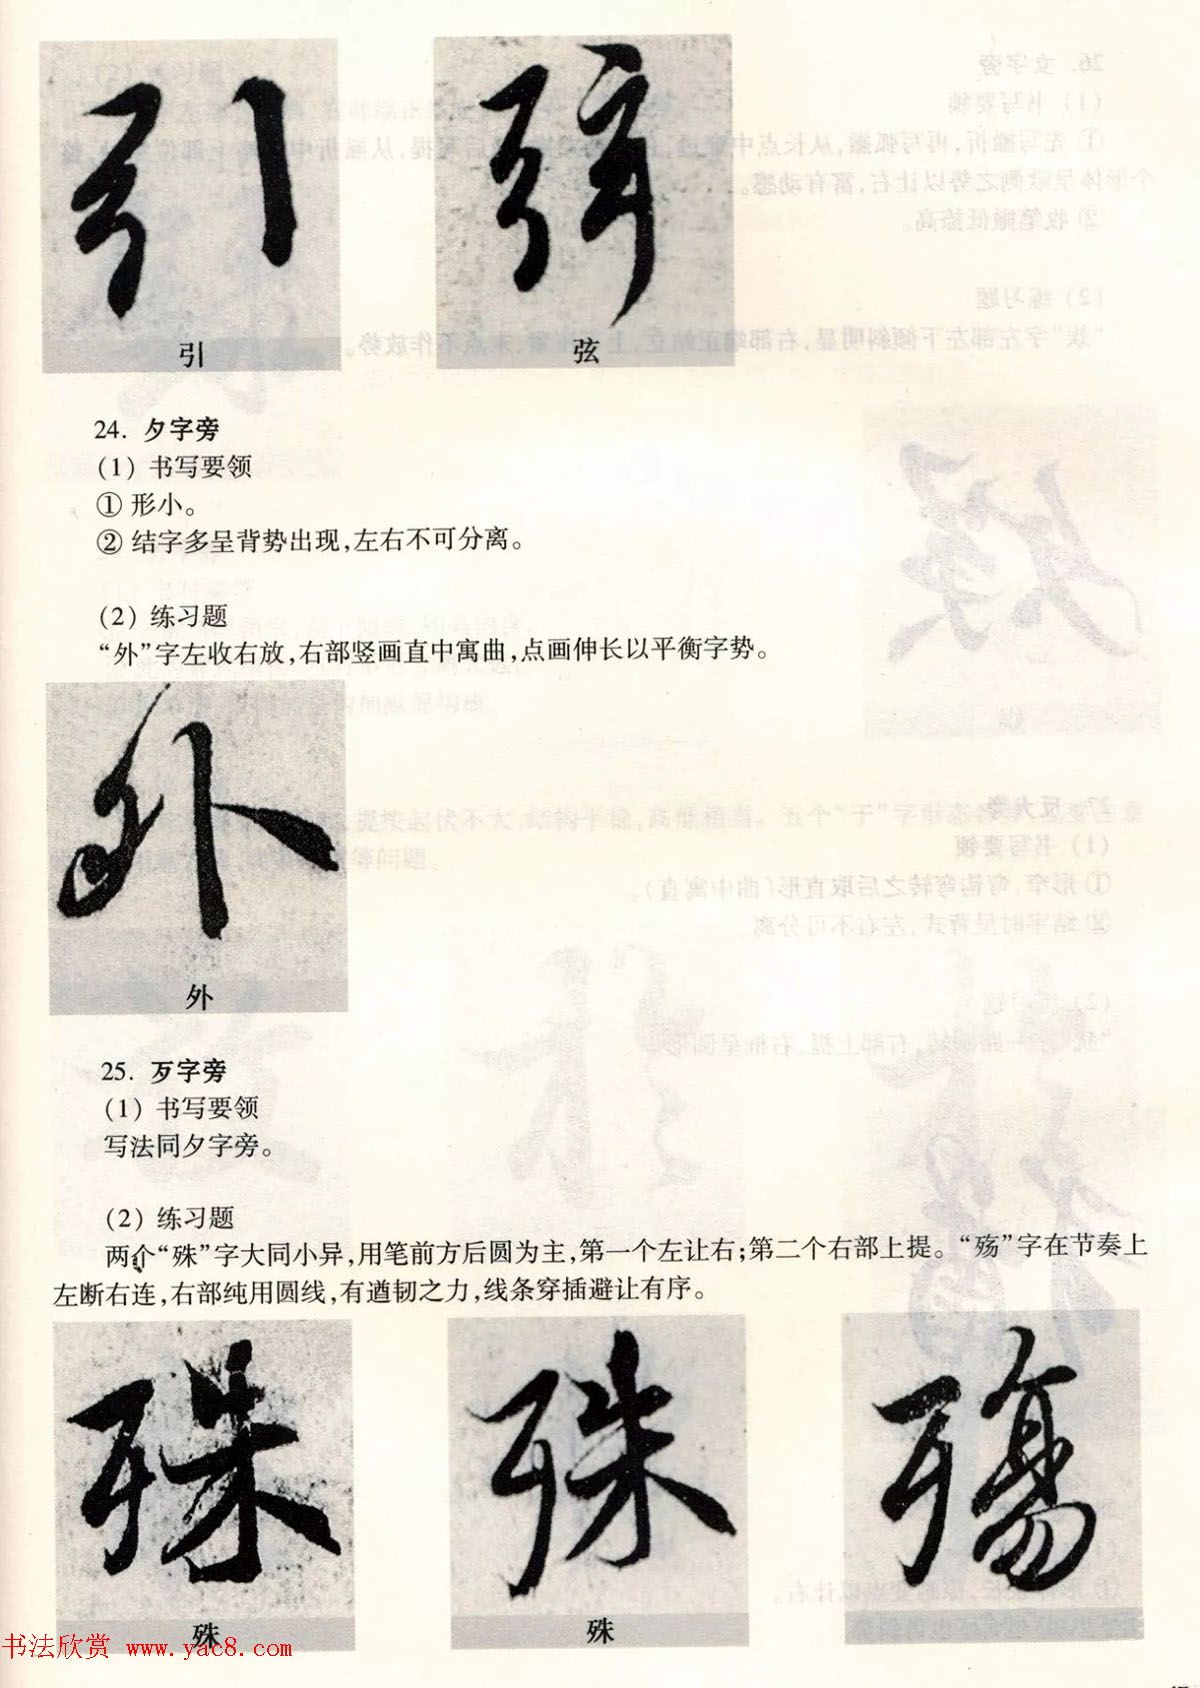 引 弦
24. 夕字旁
(1) 书写要领
① 形小。
② 结字多呈背势出现,左右不可分离。
(2) 练习题
“外”字左收右放,右部竖画直中寓曲,点画伸长以平衡字势。
外
外
25. 歹字旁
(1) 书写要领
写法同夕字旁。
(2) 练习题
两个“殊”字大同小异,用笔前方后圆为主,第一个左让右;第二个右部上提。“殇”字在节奏上
左断右连,右部纯用圆线,有遒韧之力,线条穿插避让有序。
殊 殊 殇
殊 殊
书法欣赏 www.yac8.com